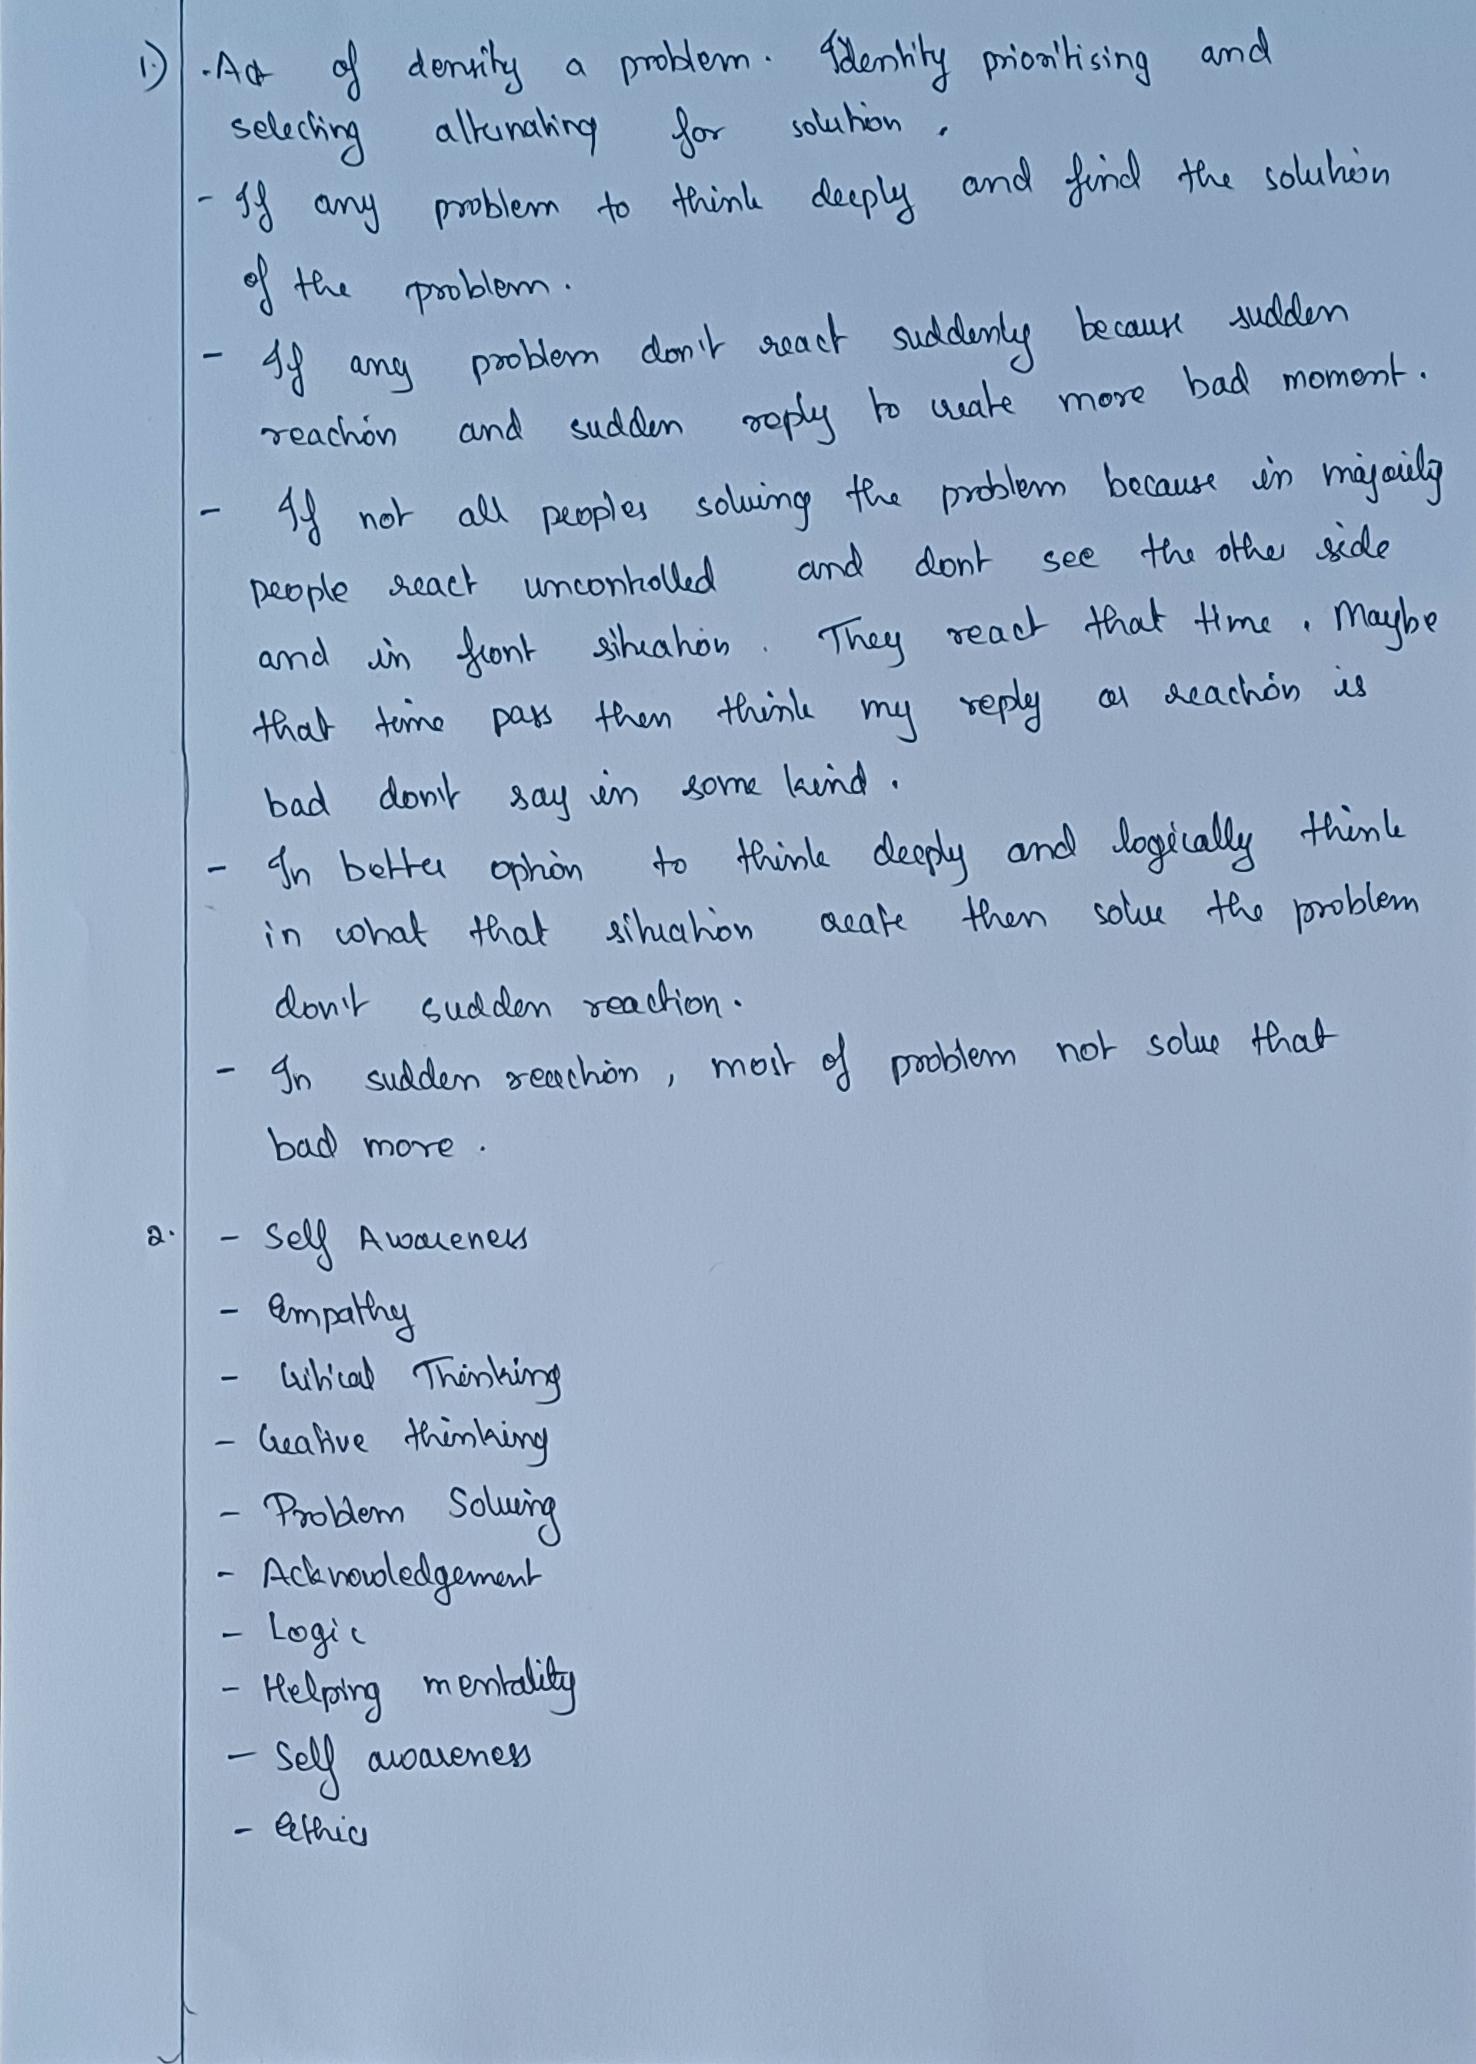 1.) - Act of density a problem. Identity prioritising and
selecting alternating for solution.
- If any problem to think deeply and find the solution
of the problem.
- If any problem don't react suddenly because sudden
reaction and sudden reply to create more bad moment.
- If not all peoples solving the problem because in majority
people react uncontrolled and dont see the other side
and in front situation. They react that time. Maybe
that time pass then think my reply or reaction is
bad don't say in some kind.
- In better option to think deeply and logically think
in what that situation create then solve the problem
don't sudden reaction.
- In sudden reaction, most of problem not solve that
bad more.
2. - Self Awareness
- Empathy
- Critical Thinking
- Creative thinking
- Problem Solving
- Acknowledgement
- Logic
- Helping mentality
- Self awareness
- Ethics